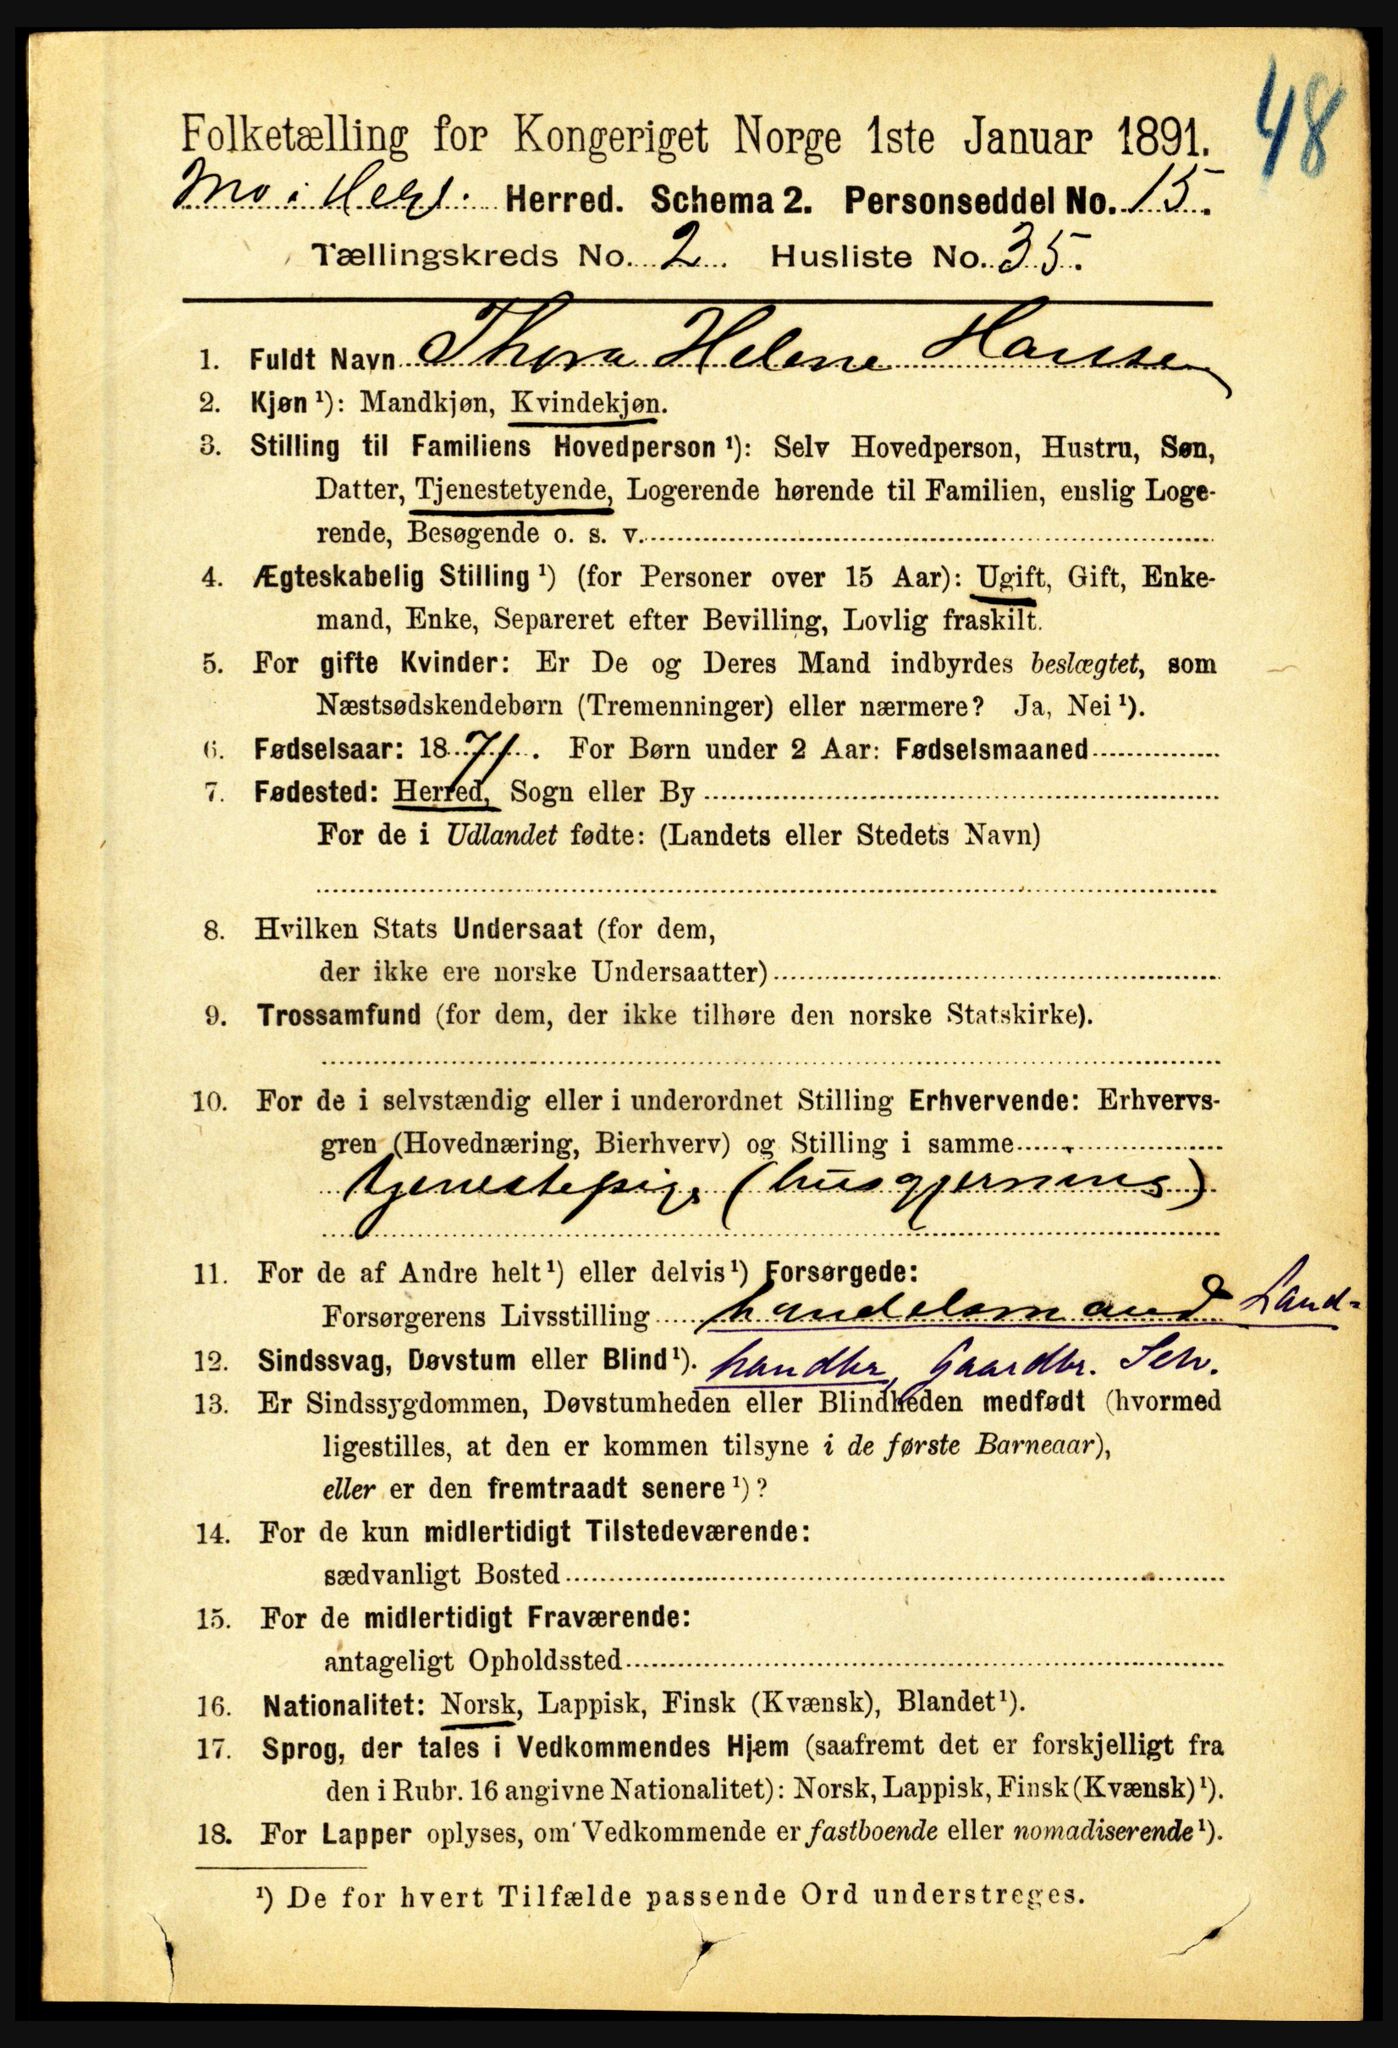 48
Folketælling for Kongeriget Norge 1ste Januar 1891.
Mo i Helgl. Herred. Schema 2. Personseddel No. 15.
Tællingskreds No. 2. Husliste No. 35.
1. Fuldt Navn Thora Helene Hansen
2. Kjøn ¹): Mandkjøn, Kvindekjøn.
3. Stilling til Familiens Hovedperson ¹): Selv Hovedperson, Hustru, Søn,
Datter, Tjenestetyende, Logerende hørende til Familien, enslig Loge-
rende, Besøgende o. s. v.
4. Ægteskabelig Stilling ¹) (for Personer over 15 Aar): Ugift, Gift, Enke-
mand, Enke, Separeret efter Bevilling, Lovlig fraskilt.
5. For gifte Kvinder: Er De og Deres Mand indbyrdes beslægtet, som
Næstsødskendebørn (Tremenninger) eller nærmere? Ja, Nei ¹).
6. Fødselsaar: 1871. For Børn under 2 Aar: Fødselsmaaned
7. Fødested: Herred, Sogn eller By
For de i Udlandet fødte: (Landets eller Stedets Navn)
8. Hvilken Stats Undersaat (for dem,
der ikke ere norske Undersaatter)
9. Trossamfund (for dem, der ikke tilhøre den norske Statskirke).
10. For de i selvstændig eller i underordnet Stilling Erhvervende: Erhvervs-
gren (Hovednæring, Bierhverv) og Stilling i samme
tjenestepige (husgjerning)
11. For de af Andre helt ¹) eller delvis ¹) Forsørgede:
Forsørgerens Livsstilling handelsmand Land-
12. Sindssvag, Døvstum eller Blind ¹). handler, Gaardbr. Selv.
13. Er Sindssygdommen, Døvstumheden eller Blindheden medfødt (hvormed
ligestilles, at den er kommen tilsyne i de første Barneaar),
eller er den fremtraadt senere ¹)?
14. For de kun midlertidigt Tilstedeværende:
sædvanligt Bosted
15. For de midlertidigt Fraværende:
antageligt Opholdssted
16. Nationalitet: Norsk, Lappisk, Finsk (Kvænsk), Blandet ¹).
17. Sprog, der tales i Vedkommendes Hjem (saafremt det er forskjelligt fra
den i Rubr. 16 angivne Nationalitet): Norsk, Lappisk, Finsk (Kvænsk) ¹).
18. For Lapper oplyses, om Vedkommende er fastboende eller nomadiserende ¹).
¹) De for hvert Tilfælde passende Ord understreges.